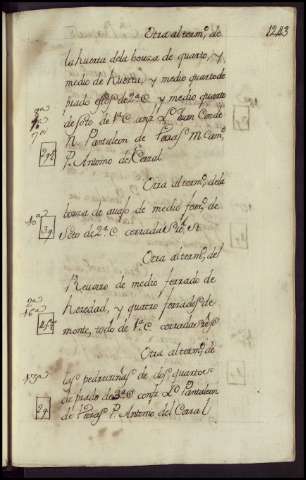 1243
Otra al term.º de
la huerta dela bouza de quarto, y
medio de huerta, y medio quarto de
prado de 2.ª C y medio quarto
de soto de 1.ª C conf. L. Juan Conde
N. Pantaleon de M. Cam.º
P. Antonio de Casal
Otra al term.º dela
bouza de abajo de medio ferr.º de
Soto de 2.ª C cerrada sobre si
Otra al term.º del
Recaro de medio ferrado de
heredad, y quatro ferrados de
monte, todo de 1.ª C cerrada
Otra al term.º de
las pedrurinas de dos quartos
de prado de 3.ª C conf. L. Pantaleon
de P. Antonio del Casal